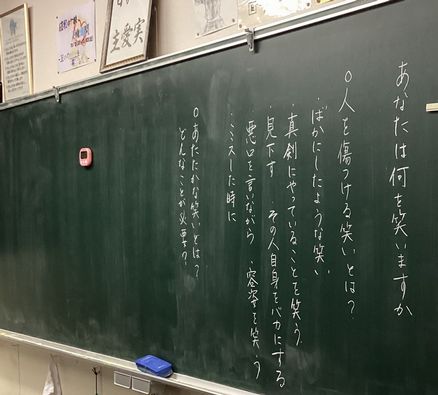 あなたは何を笑いますか
○人を傷つける笑いとは？
・ばかにしたような笑い
・真剣にやっていることを笑う
・見下す ・その人自身をバカにする
・悪口を言いながら ・容姿を笑う
・ミスした時に
○あたたかな笑いとは？
どんなことが必要？
主愛実